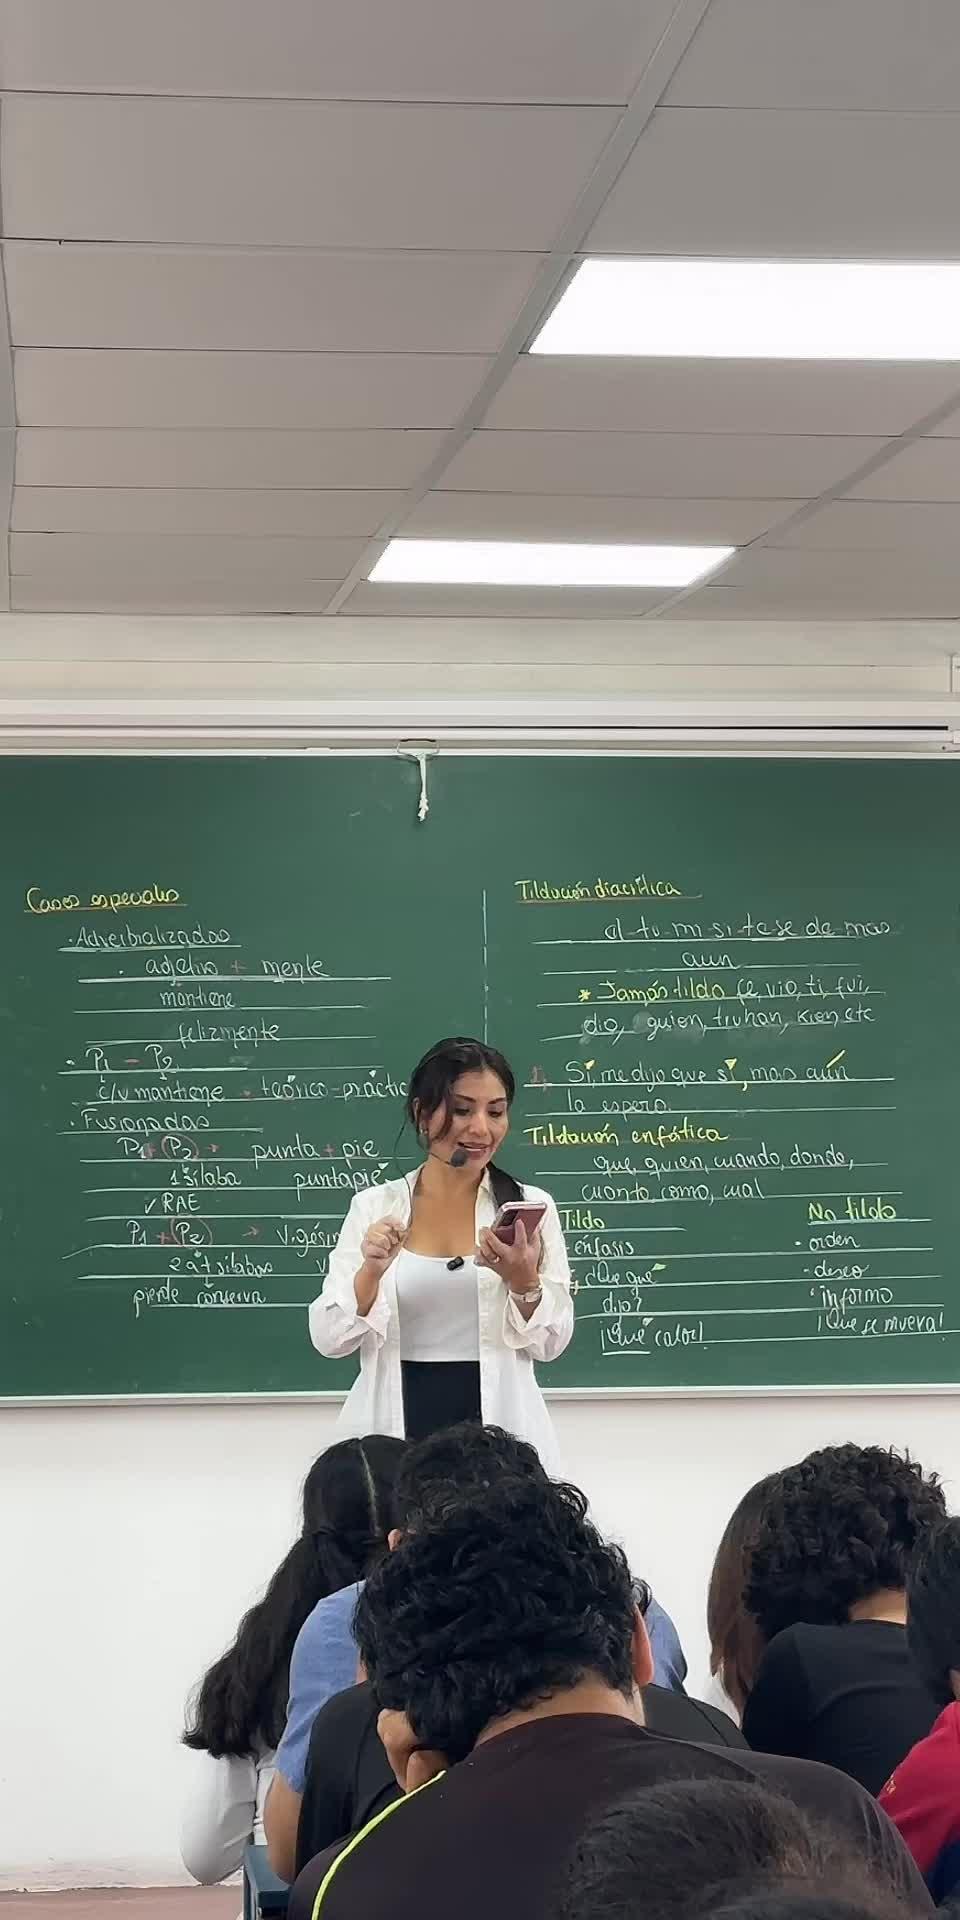 Casos especiales
· Adverbializados
· adjetivo + mente
mantiene
felizmente
· P1 - P2
c/u mantiene - teórico-práctic
· Fusionadas
P1 + P2 → punta + pie
1 sílaba puntapié
✓ RAE
P1 + P2 → vigésim
2 a + sílabas v
pierde conserva
Tildación diacrítica
el-tu-mi-si-te-se de mas
aun
* Jamás tildo fe, vio, ti, fui,
dio, guion, truhan, Kien, etc
Sí, me dijo que sí, mas aún
la espera.
Tildación enfática
que, quien, cuando, donde,
cuanto, como, cual
Tildo No tildo
énfasis · orden
¿Que qué · deseo
dijo? · informo
¡Qué calor! ¡Que se mueva!